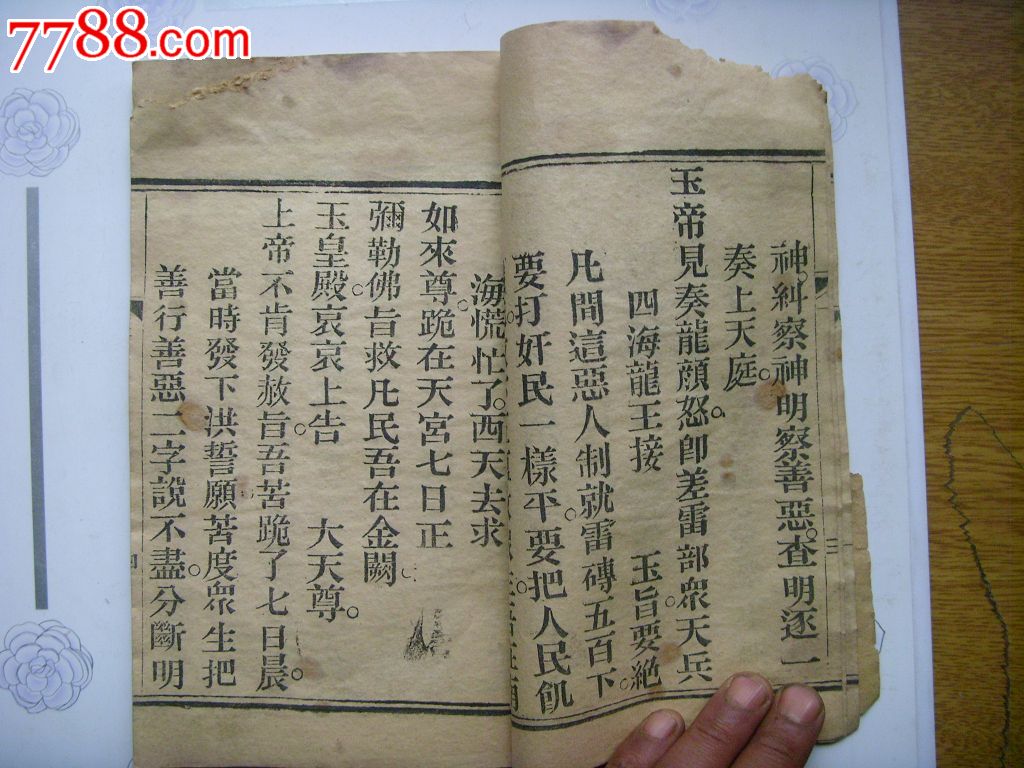 7788.com
神。糾察神明察善惡。查明逐一
奏上天庭。
玉帝見奏龍顏怒。卽差雷部衆天兵
四海龍王接　玉旨要絕
凡間這惡人制就雷磚五百下。
要打奸民一樣平。要把人民飢
海慌忙了。西天去求
如來尊。跪在天宮七日正
彌勒佛旨救凡民吾在金闕
玉皇殿。哀哀上告　大天尊。
上帝不肯發赦旨。吾苦跪了七日晨。
當時發下洪誓愿苦度衆生把
善行善惡二字說不盡。分斷明